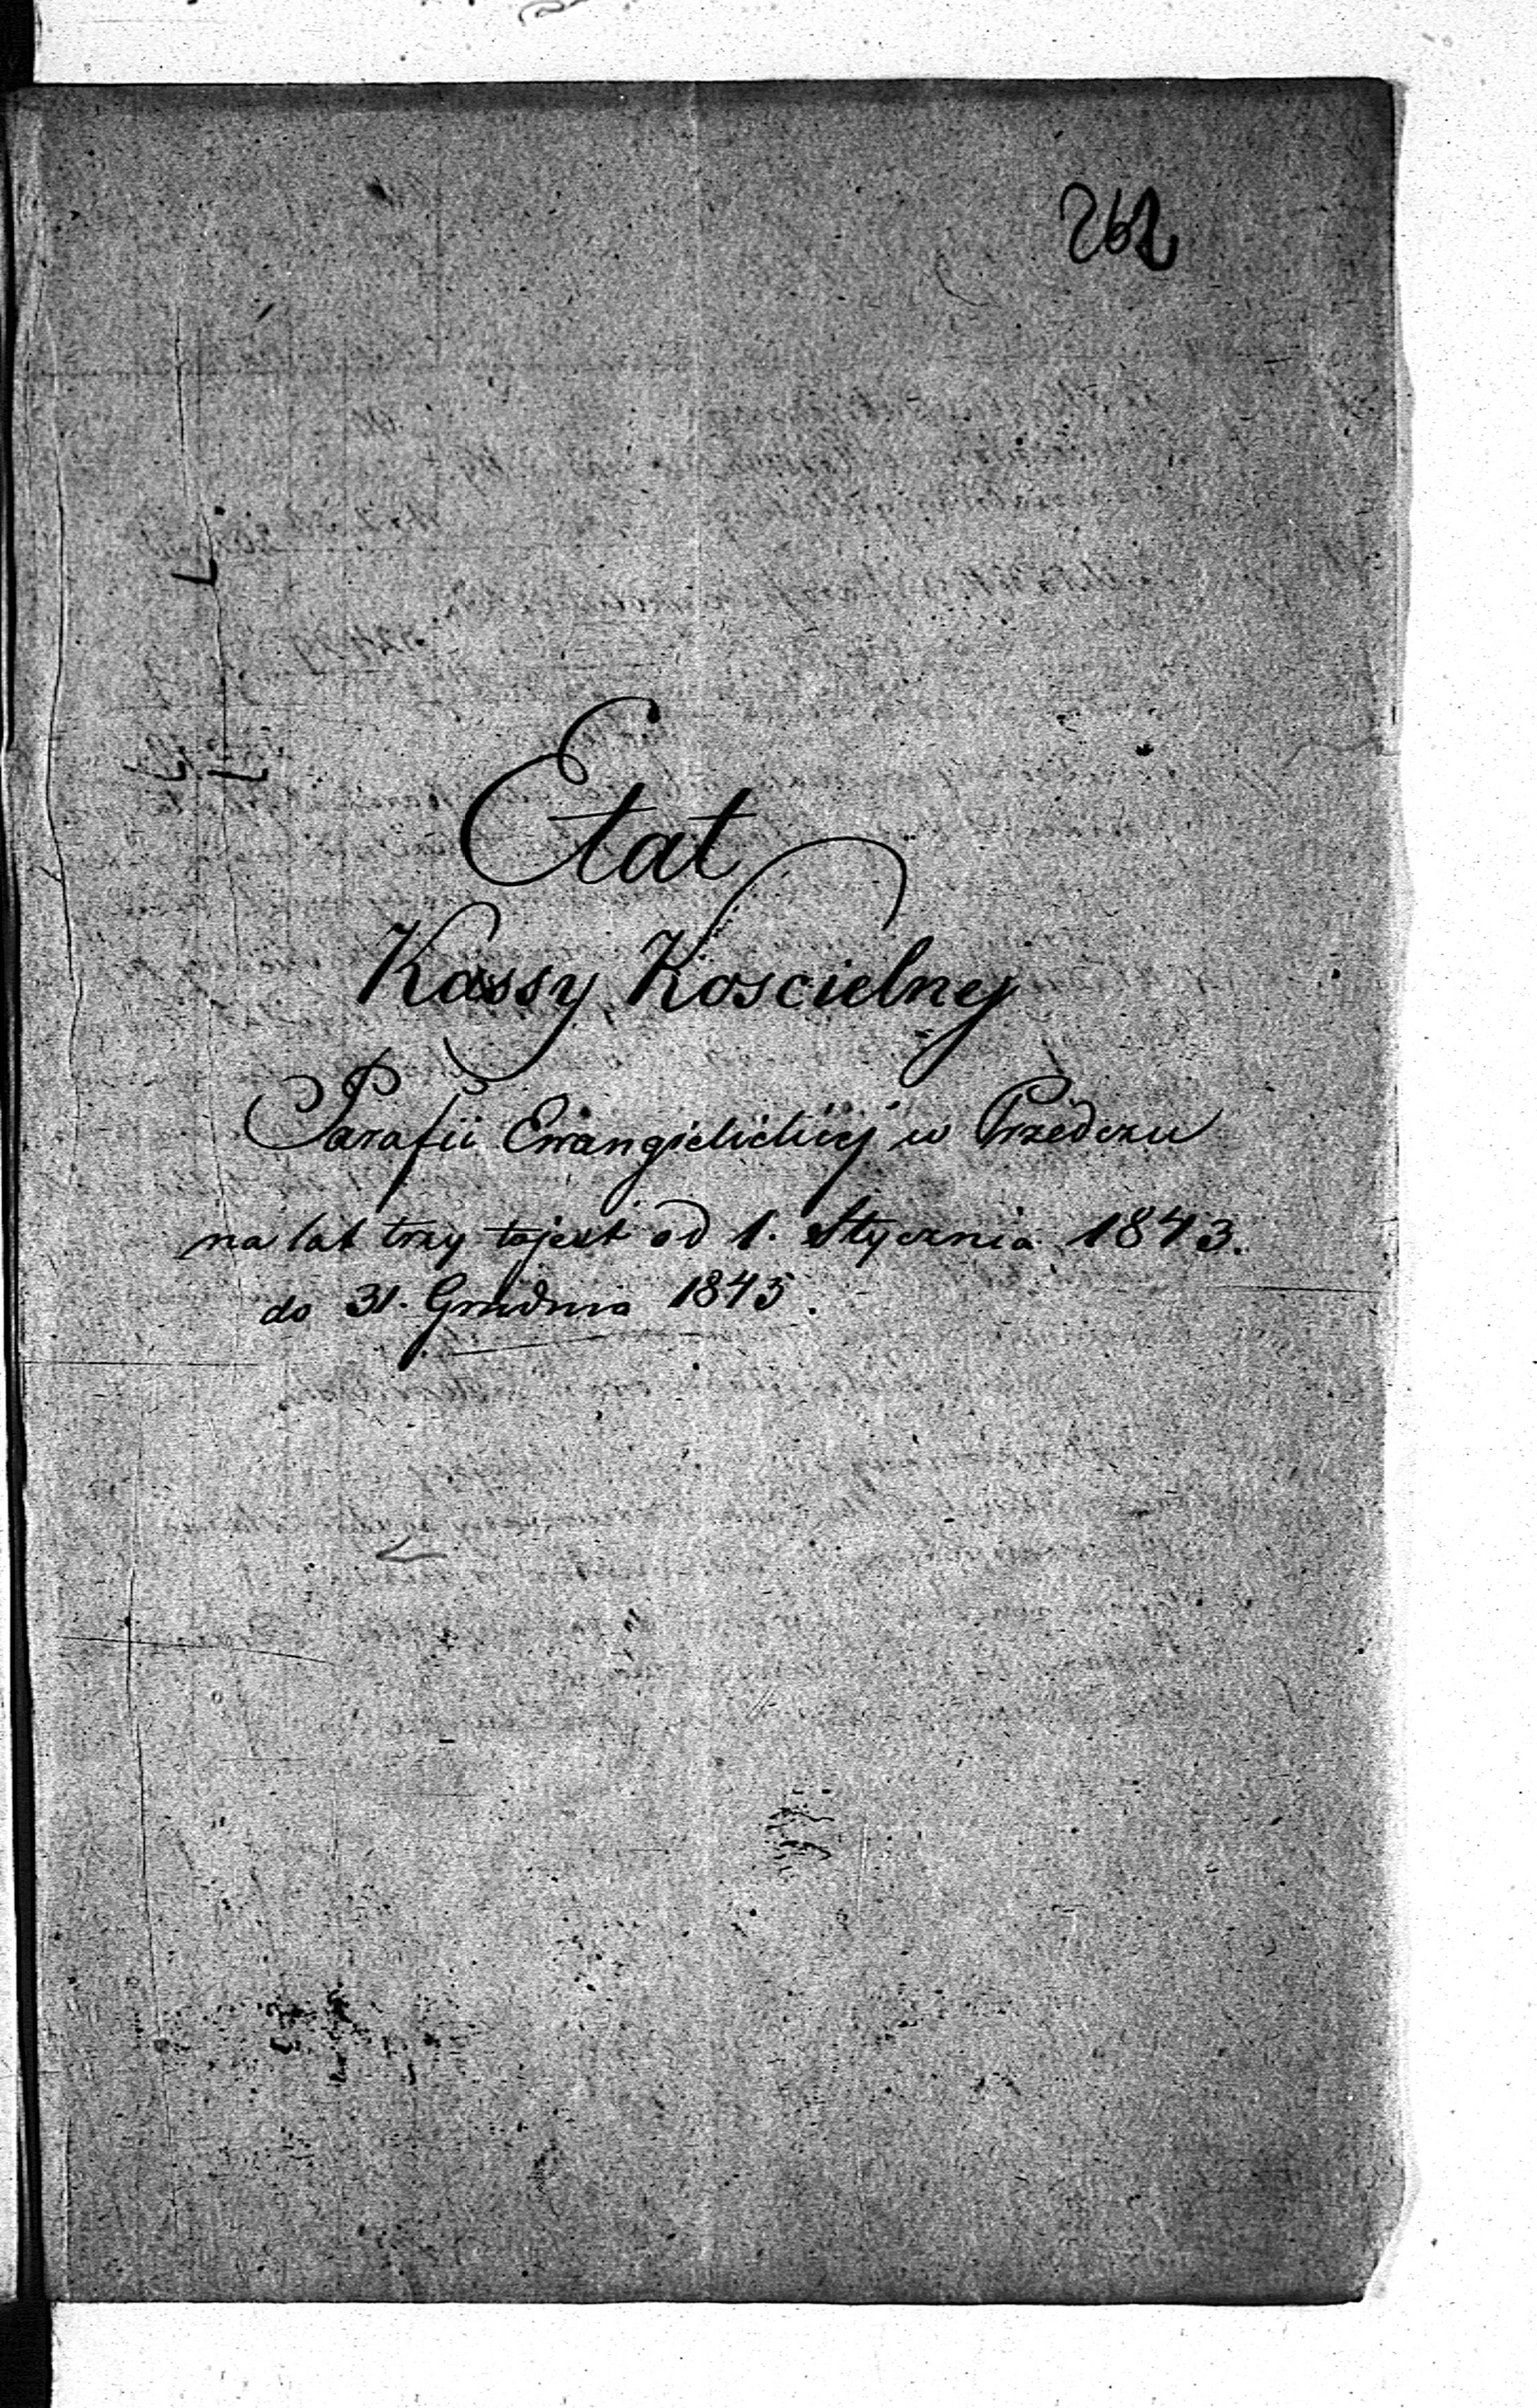 262
Etat
Kassy Koscielney
Parafii Ewangielickiej w Przedczu
na lat trzy tojest od 1. Stycznia 1843.
do 31. Grudnia 1845.